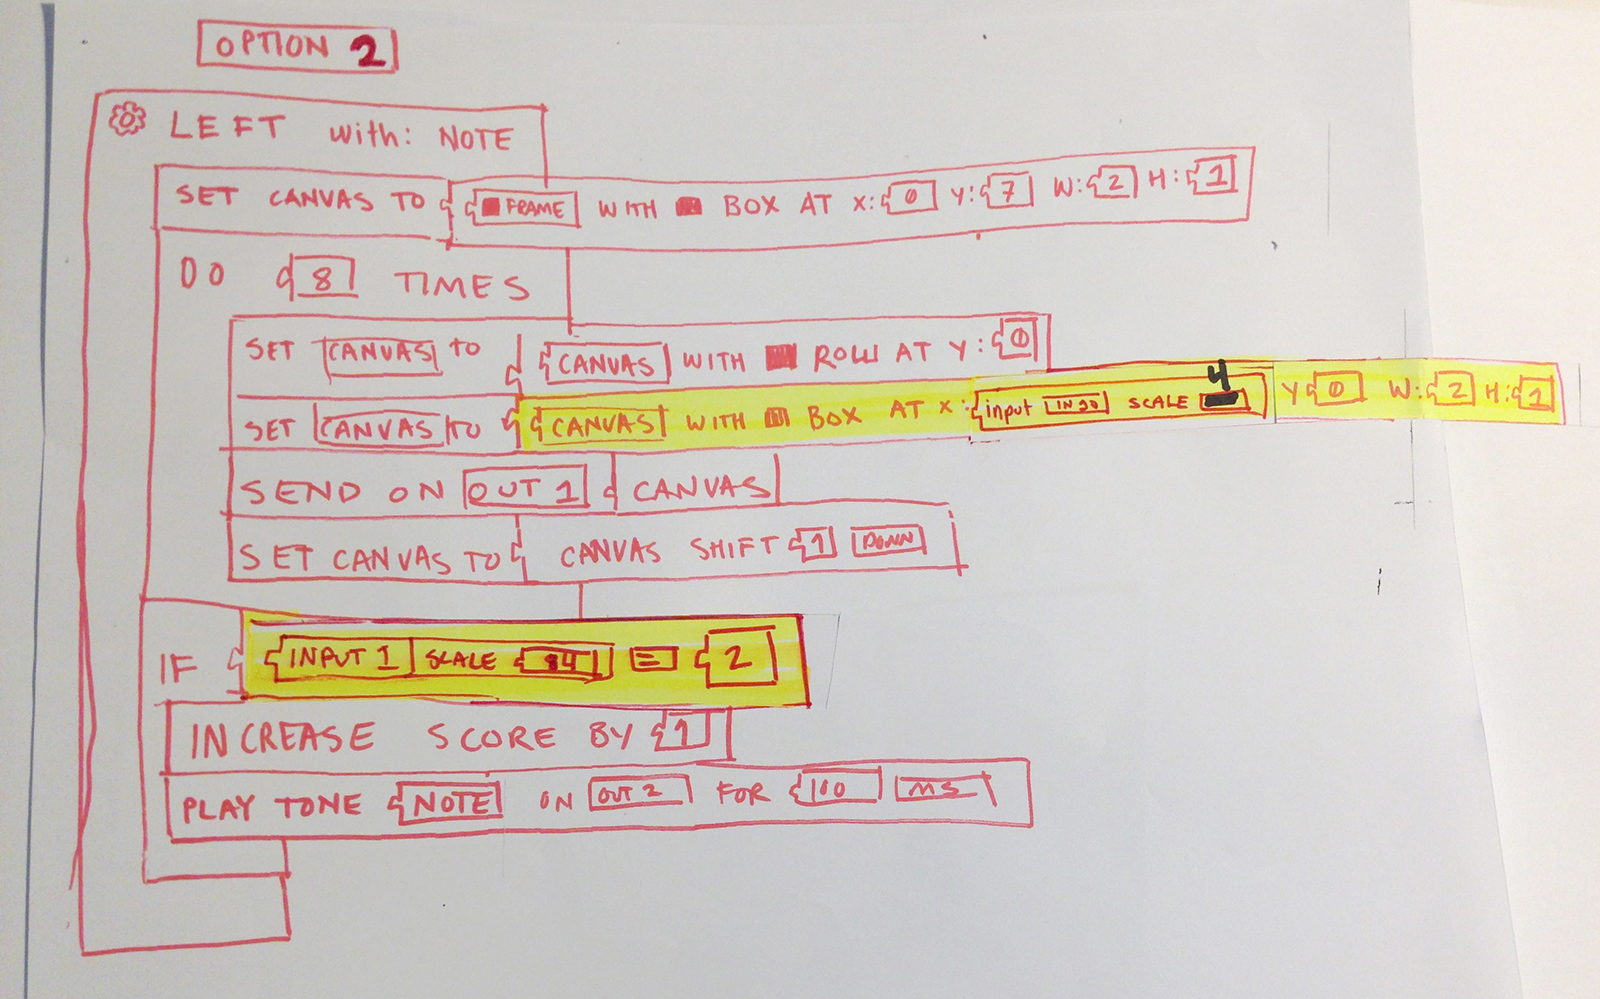 OPTION 2
LEFT with: NOTE
SET CANVAS TO FRAME WITH BOX AT X: 0 Y: 7 W: 2 H: 1
DO 8 TIMES
SET CANVAS TO CANVAS WITH ROW AT Y: 0
4
SET CANVAS TO CANVAS WITH BOX AT X: input SCALE Y 0 W: 2 H: 1
SEND ON OUT 1 CANVAS
SET CANVAS TO CANVAS SHIFT 1 DOWN
IF INPUT 1 SCALE = 2
INCREASE SCORE BY 1
PLAY TONE NOTE ON OUT 2 FOR 100 MS